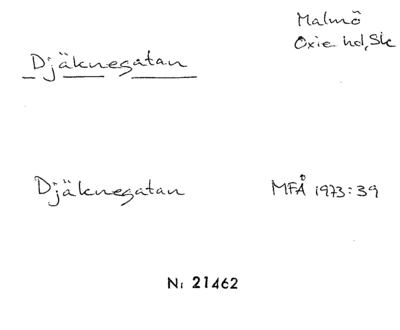 Malmö
Oxie hd, Sk
Djäknegatan
Djäknegatan MFÅ 1973:39
Nr 21462